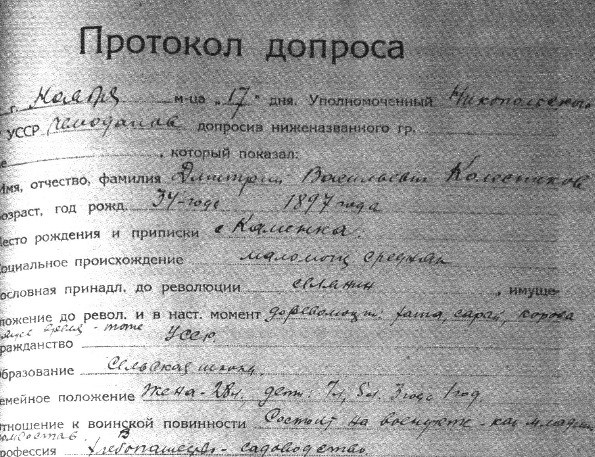 Протокол допроса
г. Ноября м-ца „17" дня. Уполномоченный Никопольского
УССР Чемоданов допросив ниженазванного гр.
, который показал:
Имя, отчество, фамилия Дмитрий Васильевич Колесников
возраст, год рожд. 34-года 1897 года
Место рождения и приписки с Каменка.
Социальное происхождение маломощ средняк
Сословная принадл. до революции селянин, имуще-
ложение до револ. и в наст. момент дореволюции: хата, сарай, корова
тоже
гражданство УССР
Образование Сельская школа
Семейное положение Жена-28л, дети: 7л, 5л. 3 года 1 год
отношение к воинской повинности Состоит на воен учете - как младш.
комсостав.
профессия Хлебопашество - садоводство